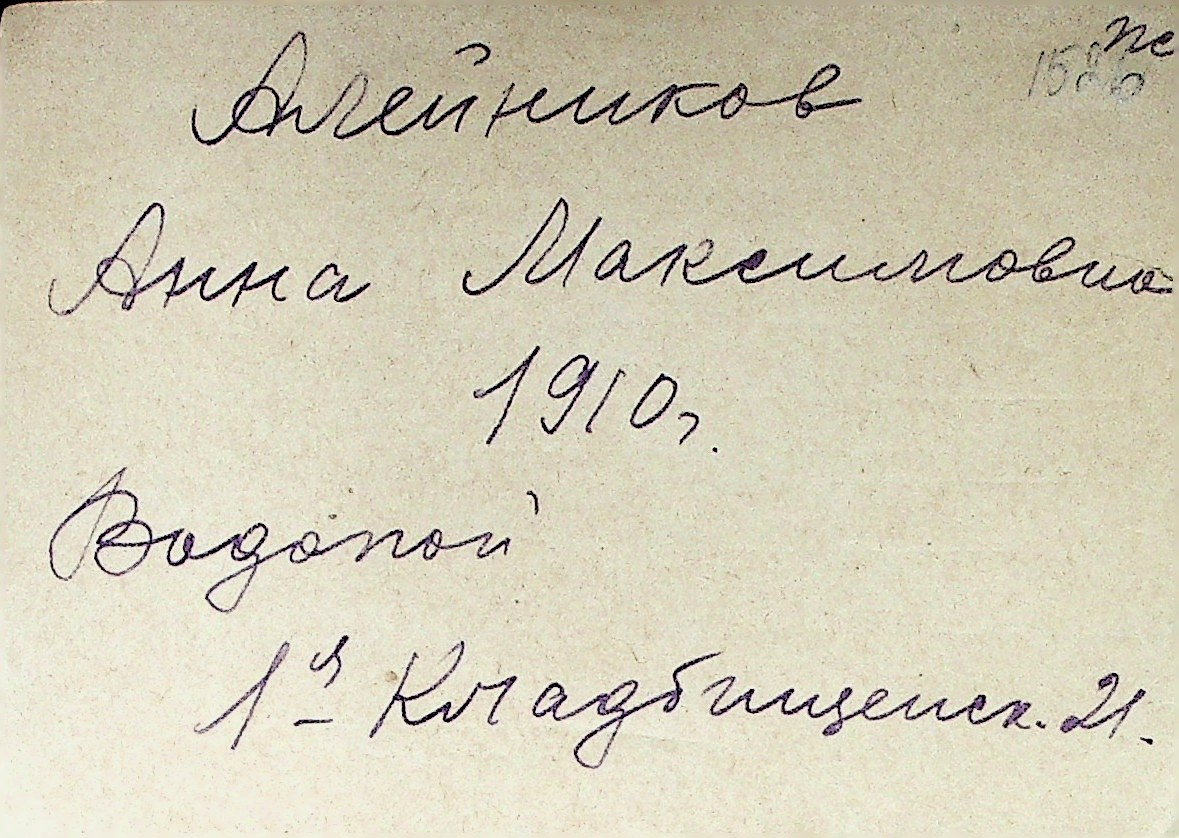 Алейников
Анна Максимовна
1910г.
Водопой
1я Кладбищенск. 21.